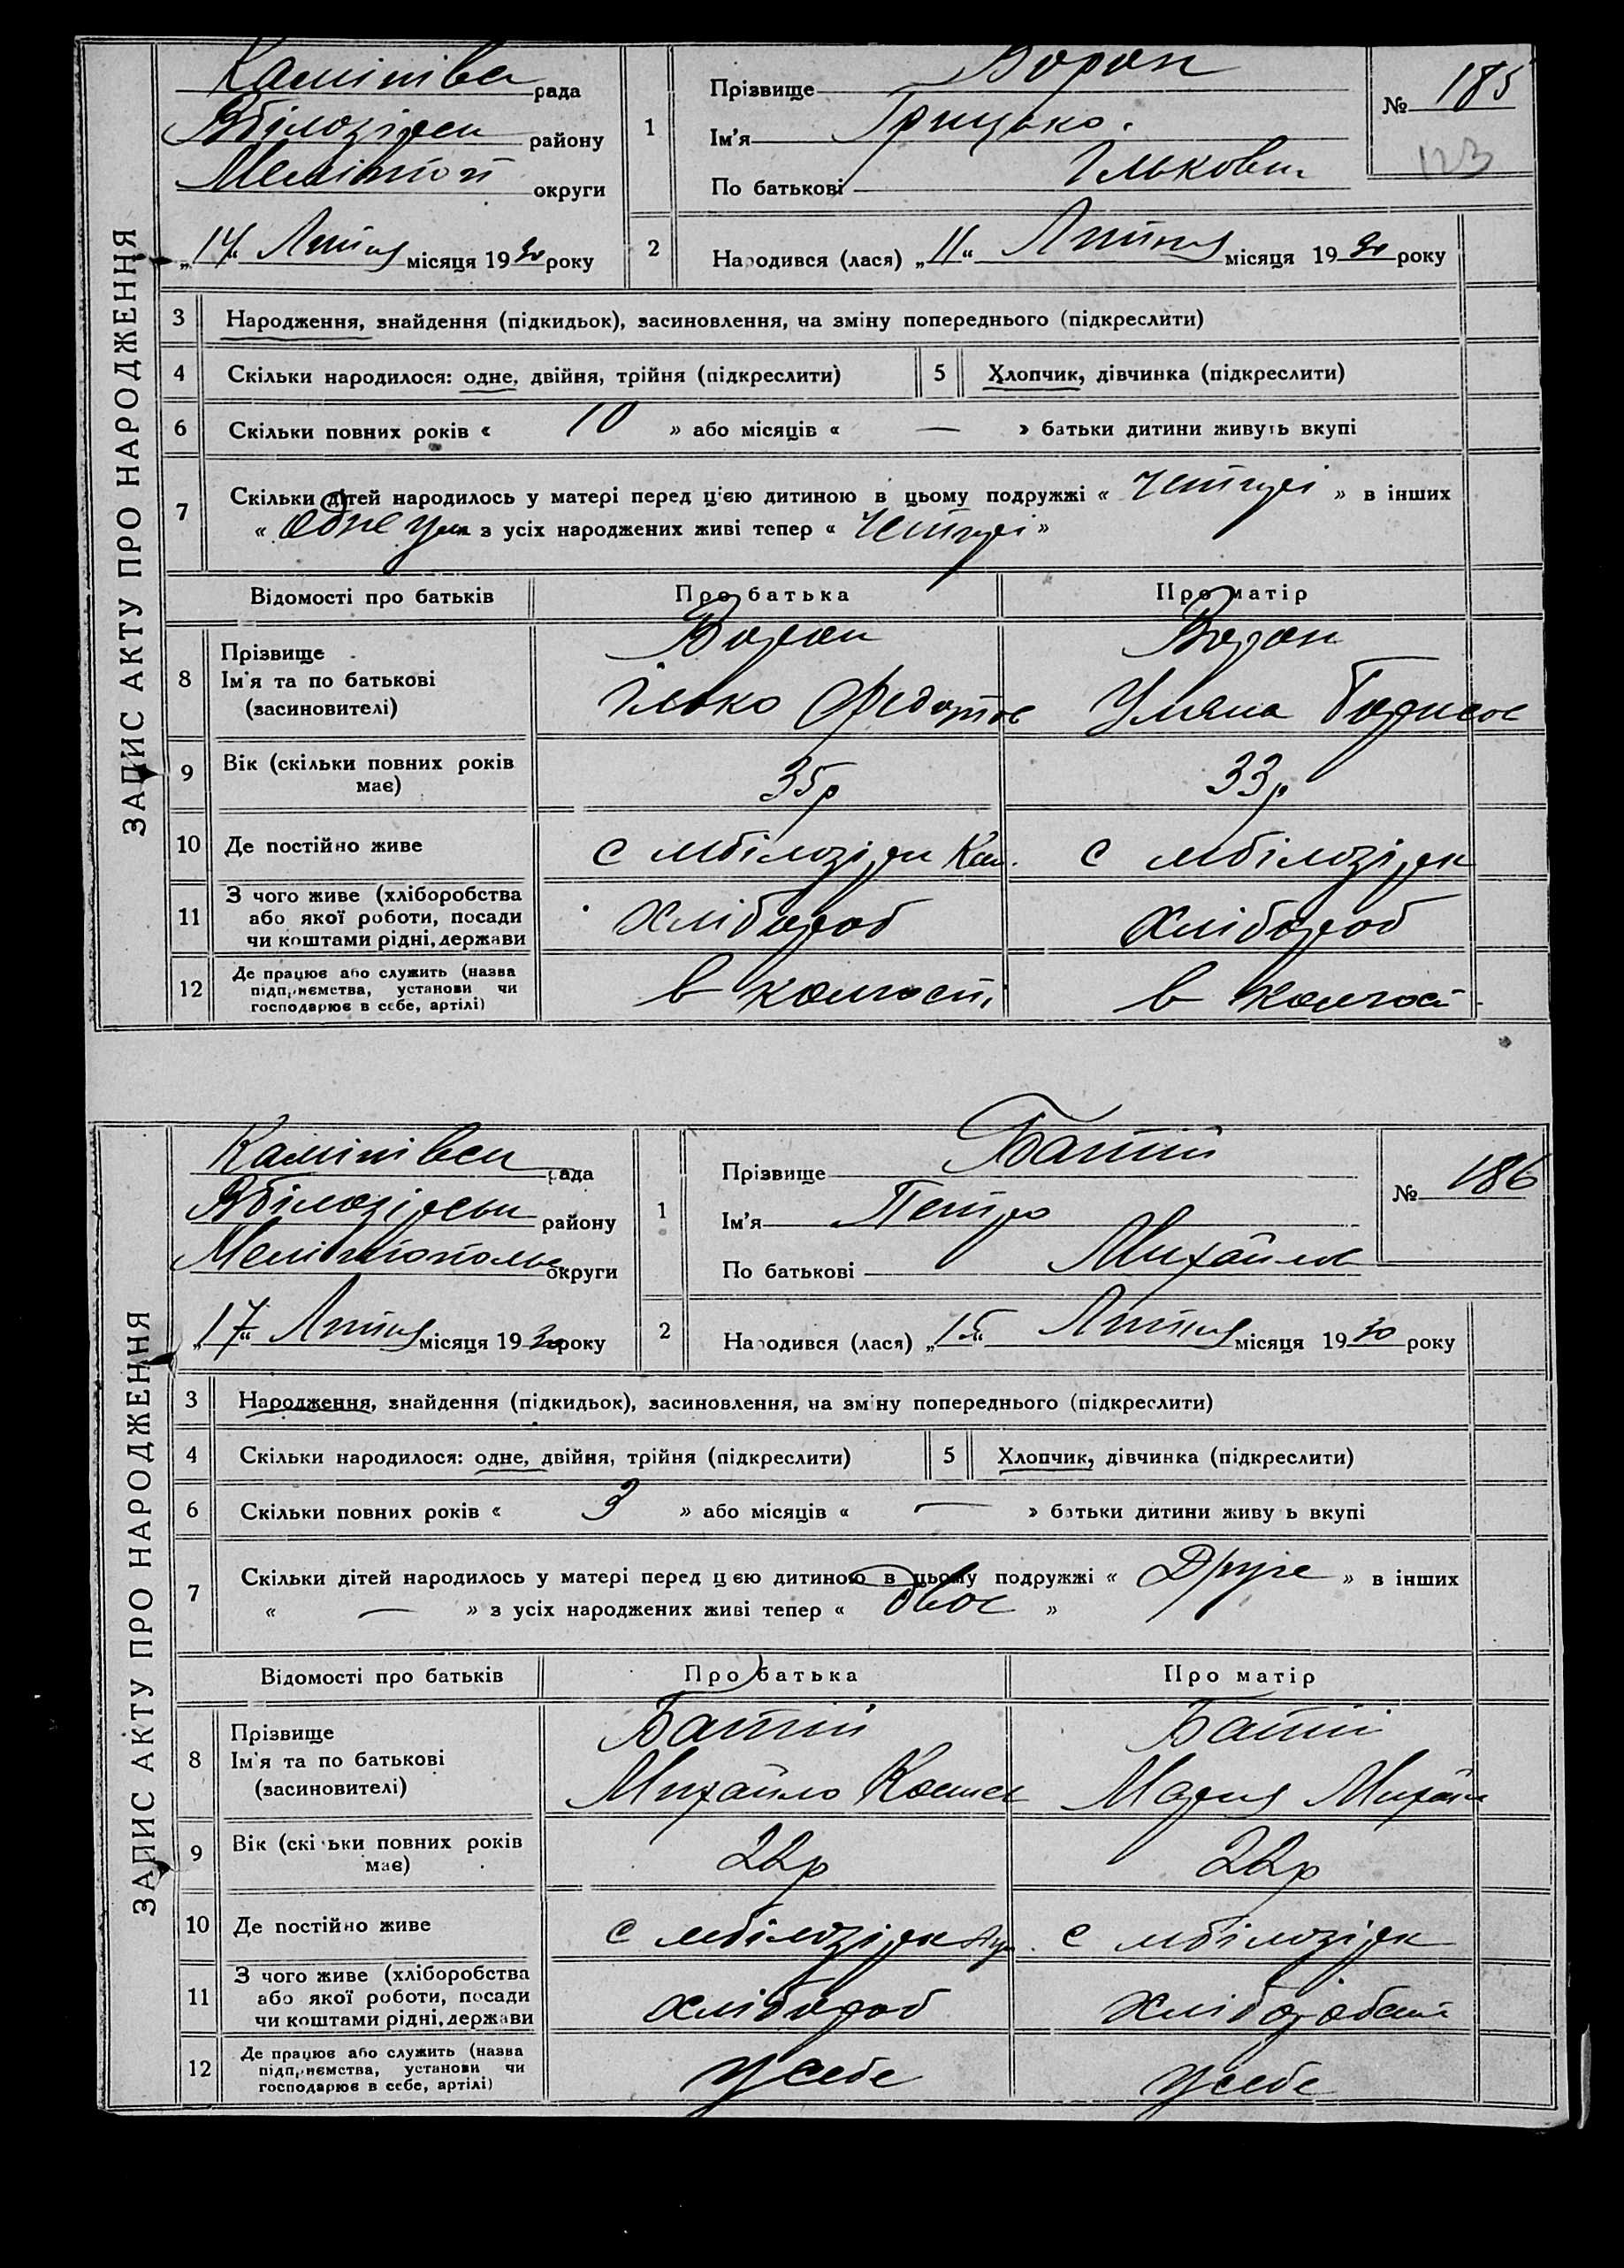 ЗАПИС АКТУ ПРО НАРОДЖЕННЯ
рада
району
Меліт
округи
„14“ Липня місяця 1930 року
1
Прізвище Воран
Ім'я Грицько.
По батькові Ількович
№ 185
123
2
Народився (лася) „11“ Липня місяця 1930 року
3 Народження, знайдення (підкидьок), засиновлення, на зміну попереднього (підкреслити)
4 Скільки народилося: одне, двійня, трійня (підкреслити)
5 Хлопчик, дівчинка (підкреслити)
6 Скільки повних років « 10 » або місяців « — » батьки дитини живуть вкупі
7 Скільки дітей народилось у матері перед цією дитиною в цьому подружжі « » в інших
« одне з усіх народжених живі тепер « »
Відомості про батьків
Про батька
Про матір
8 Прізвище
Ім'я та по батькові
(засиновителі)
Воран
Ілько Федотов
Воран
Уляна Борисов
9 Вік (скільки повних років
має)
35р
33р
10 Де постійно живе
с мбілозірк Кам.
с мбілозірк
11 З чого живе (хліборобства
або якої роботи, посади
чи коштами рідні, держави
Хлібороб
Хлібороб
12 Де працює або служить (назва
підприємства, установи чи
господарює в себе, артілі)
в
в
ЗАПИС АКТУ ПРО НАРОДЖЕННЯ
рада
району
Мелітополь
округи
„17“ Липня місяця 1930 року
1
Прізвище Батій
Ім'я Петро
По батькові Михайлов
№ 186
2
Народився (лася) „15“ Липня місяця 1930 року
3 Народження, знайдення (підкидьок), засиновлення, на зміну попереднього (підкреслити)
4 Скільки народилося: одне, двійня, трійня (підкреслити)
5 Хлопчик, дівчинка (підкреслити)
6 Скільки повних років « 3 » або місяців « — » батьки дитини живуть вкупі
7 Скільки дітей народилось у матері перед цією дитиною в цьому подружжі « Друге » в інших
« — » з усіх народжених живі тепер « двос »
Відомості про батьків
Про батька
Про матір
8 Прізвище
Ім'я та по батькові
(засиновителі)
Батій
Михайло
Батій
Мария Михайл
9 Вік (скільки повних років
має)
22р
22р
10 Де постійно живе
с мбілозірк
с мбілозірк
11 З чого живе (хліборобства
або якої роботи, посади
чи коштами рідні, держави
хлібороб
12 Де працює або служить (назва
підприємства, установи чи
господарює в себе, артілі)
у себе
у себе